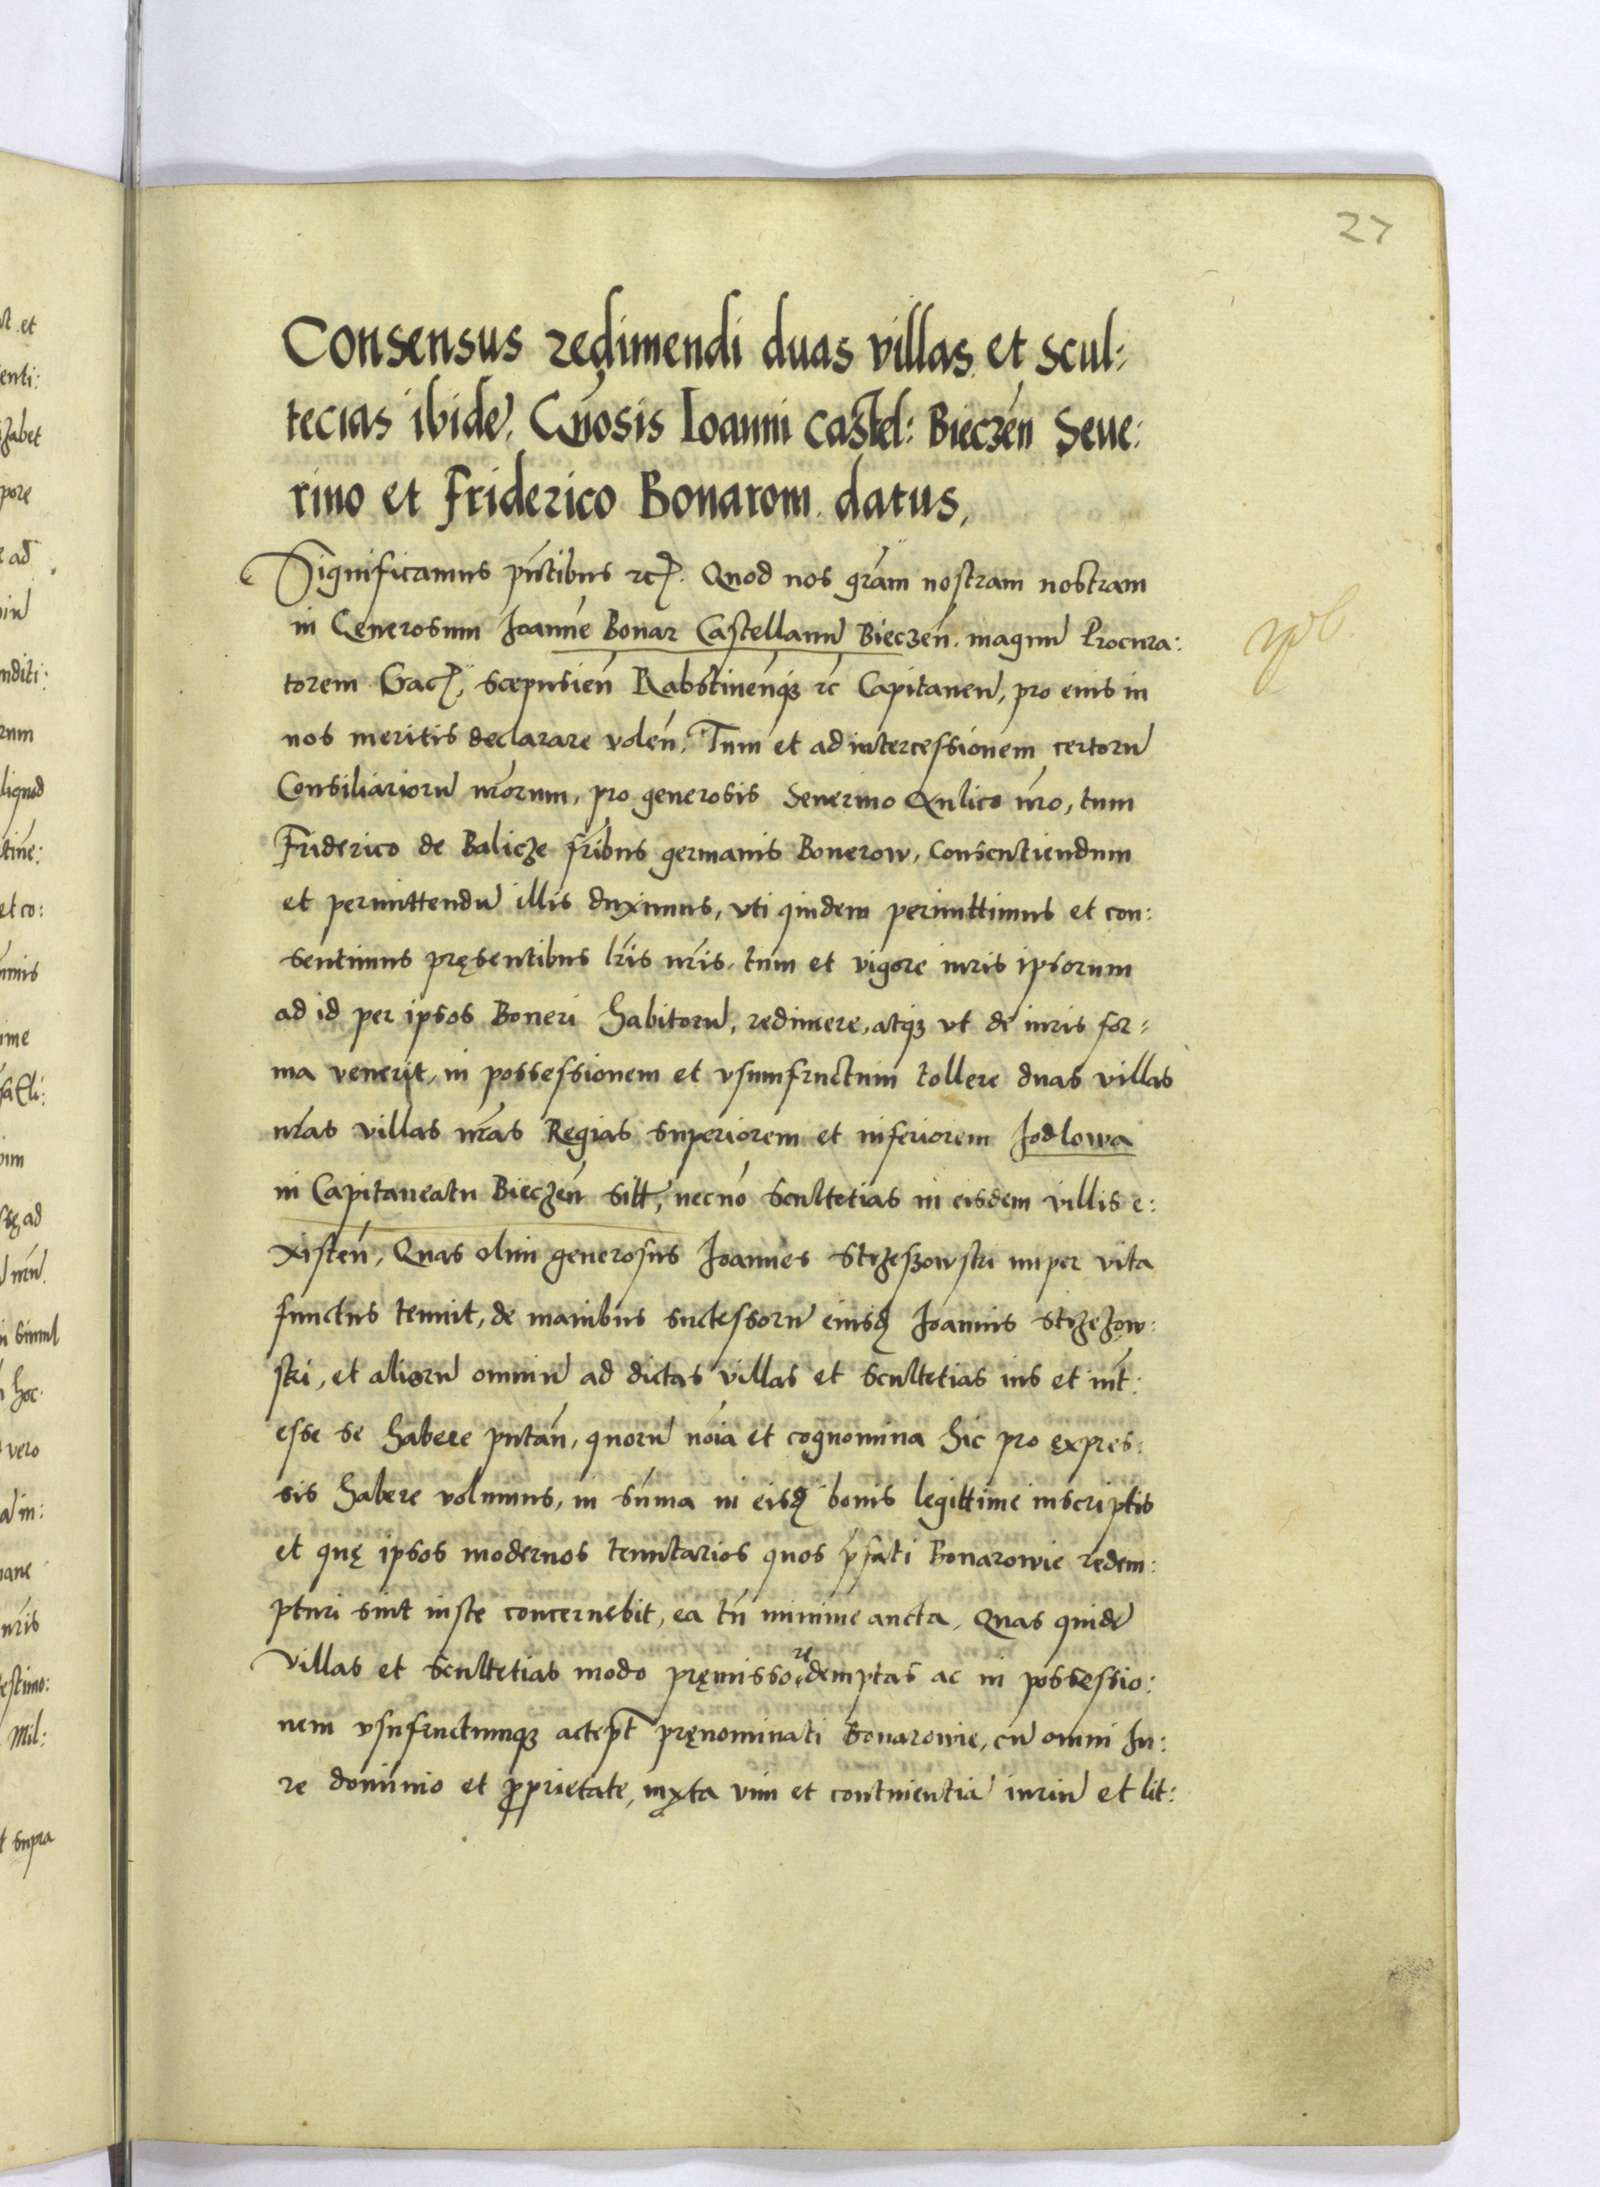 27
Consensus redimendi duas villas et scul:
tecias ibidẽ, Gñosis Ioanni Castel: Bieczeñ Seue:
rino et Friderico Bonarom datus,
Significamus pñtibus rc. Quod nos grãm nostram nostram
in Generosum Joannẽ Bonar Castellanũ Bieczeñ. magnũ Procura:
torem Crac, scepusieñ Rabstineñq3 rc Capitaneũ, pro eius in
nos meritis declarare voleñ, Tum et ad intercessionem certorũ
Consiliariorũ nrõrum, pro generosis Seuerino Aulico nrõ, tum
Friderico de Balicze frĩbus germanis Bonerow, Consentiendum
et permittendũ illis duximus, vti quidem permittimus et con:
sentimus pręsentibus lrĩs nrĩs, tum et vigore iuris ipsorum
ad id per ipsos Boneri habitorũ, redimere, atq3 vt de iuris for:
ma venerit, in possessionem et vsumfructum tollere duas villas
nrãs villas nrãs Regias superiorem et inferiorem Jodlowa
in Capitaneatu Bieczeñ sitt, necnõ scultetias in eisdem villis e:
xisteñ, Quas olim generosus Joannes Strzeszowski nuper vita
functus tenuit, de manibus successorũ eiusd Joannis Strzezow:
ski, et aliorũ omniũ ad dictas villas et scultetias ius et int:
esse se habere putañ, quorũ nõia et cognomina hic pro expres:
sis habere volumus, in sũma in eisd bonis legittime inscriptis
et quę ipsos modernos tenutarios quos p̃fati Bonarowie redem:
pturi sint iuste concernebit, ea tñ minime aucta, Quas quidẽ
villas et scultetias modo pręmisso redemptas ac in possessio:
nem vsufructumq3 accept pręnominati Bonarowie, cũ omni Ju:
re dominio et proprietate, iuxta vim et continentiã iuriũ et lit: